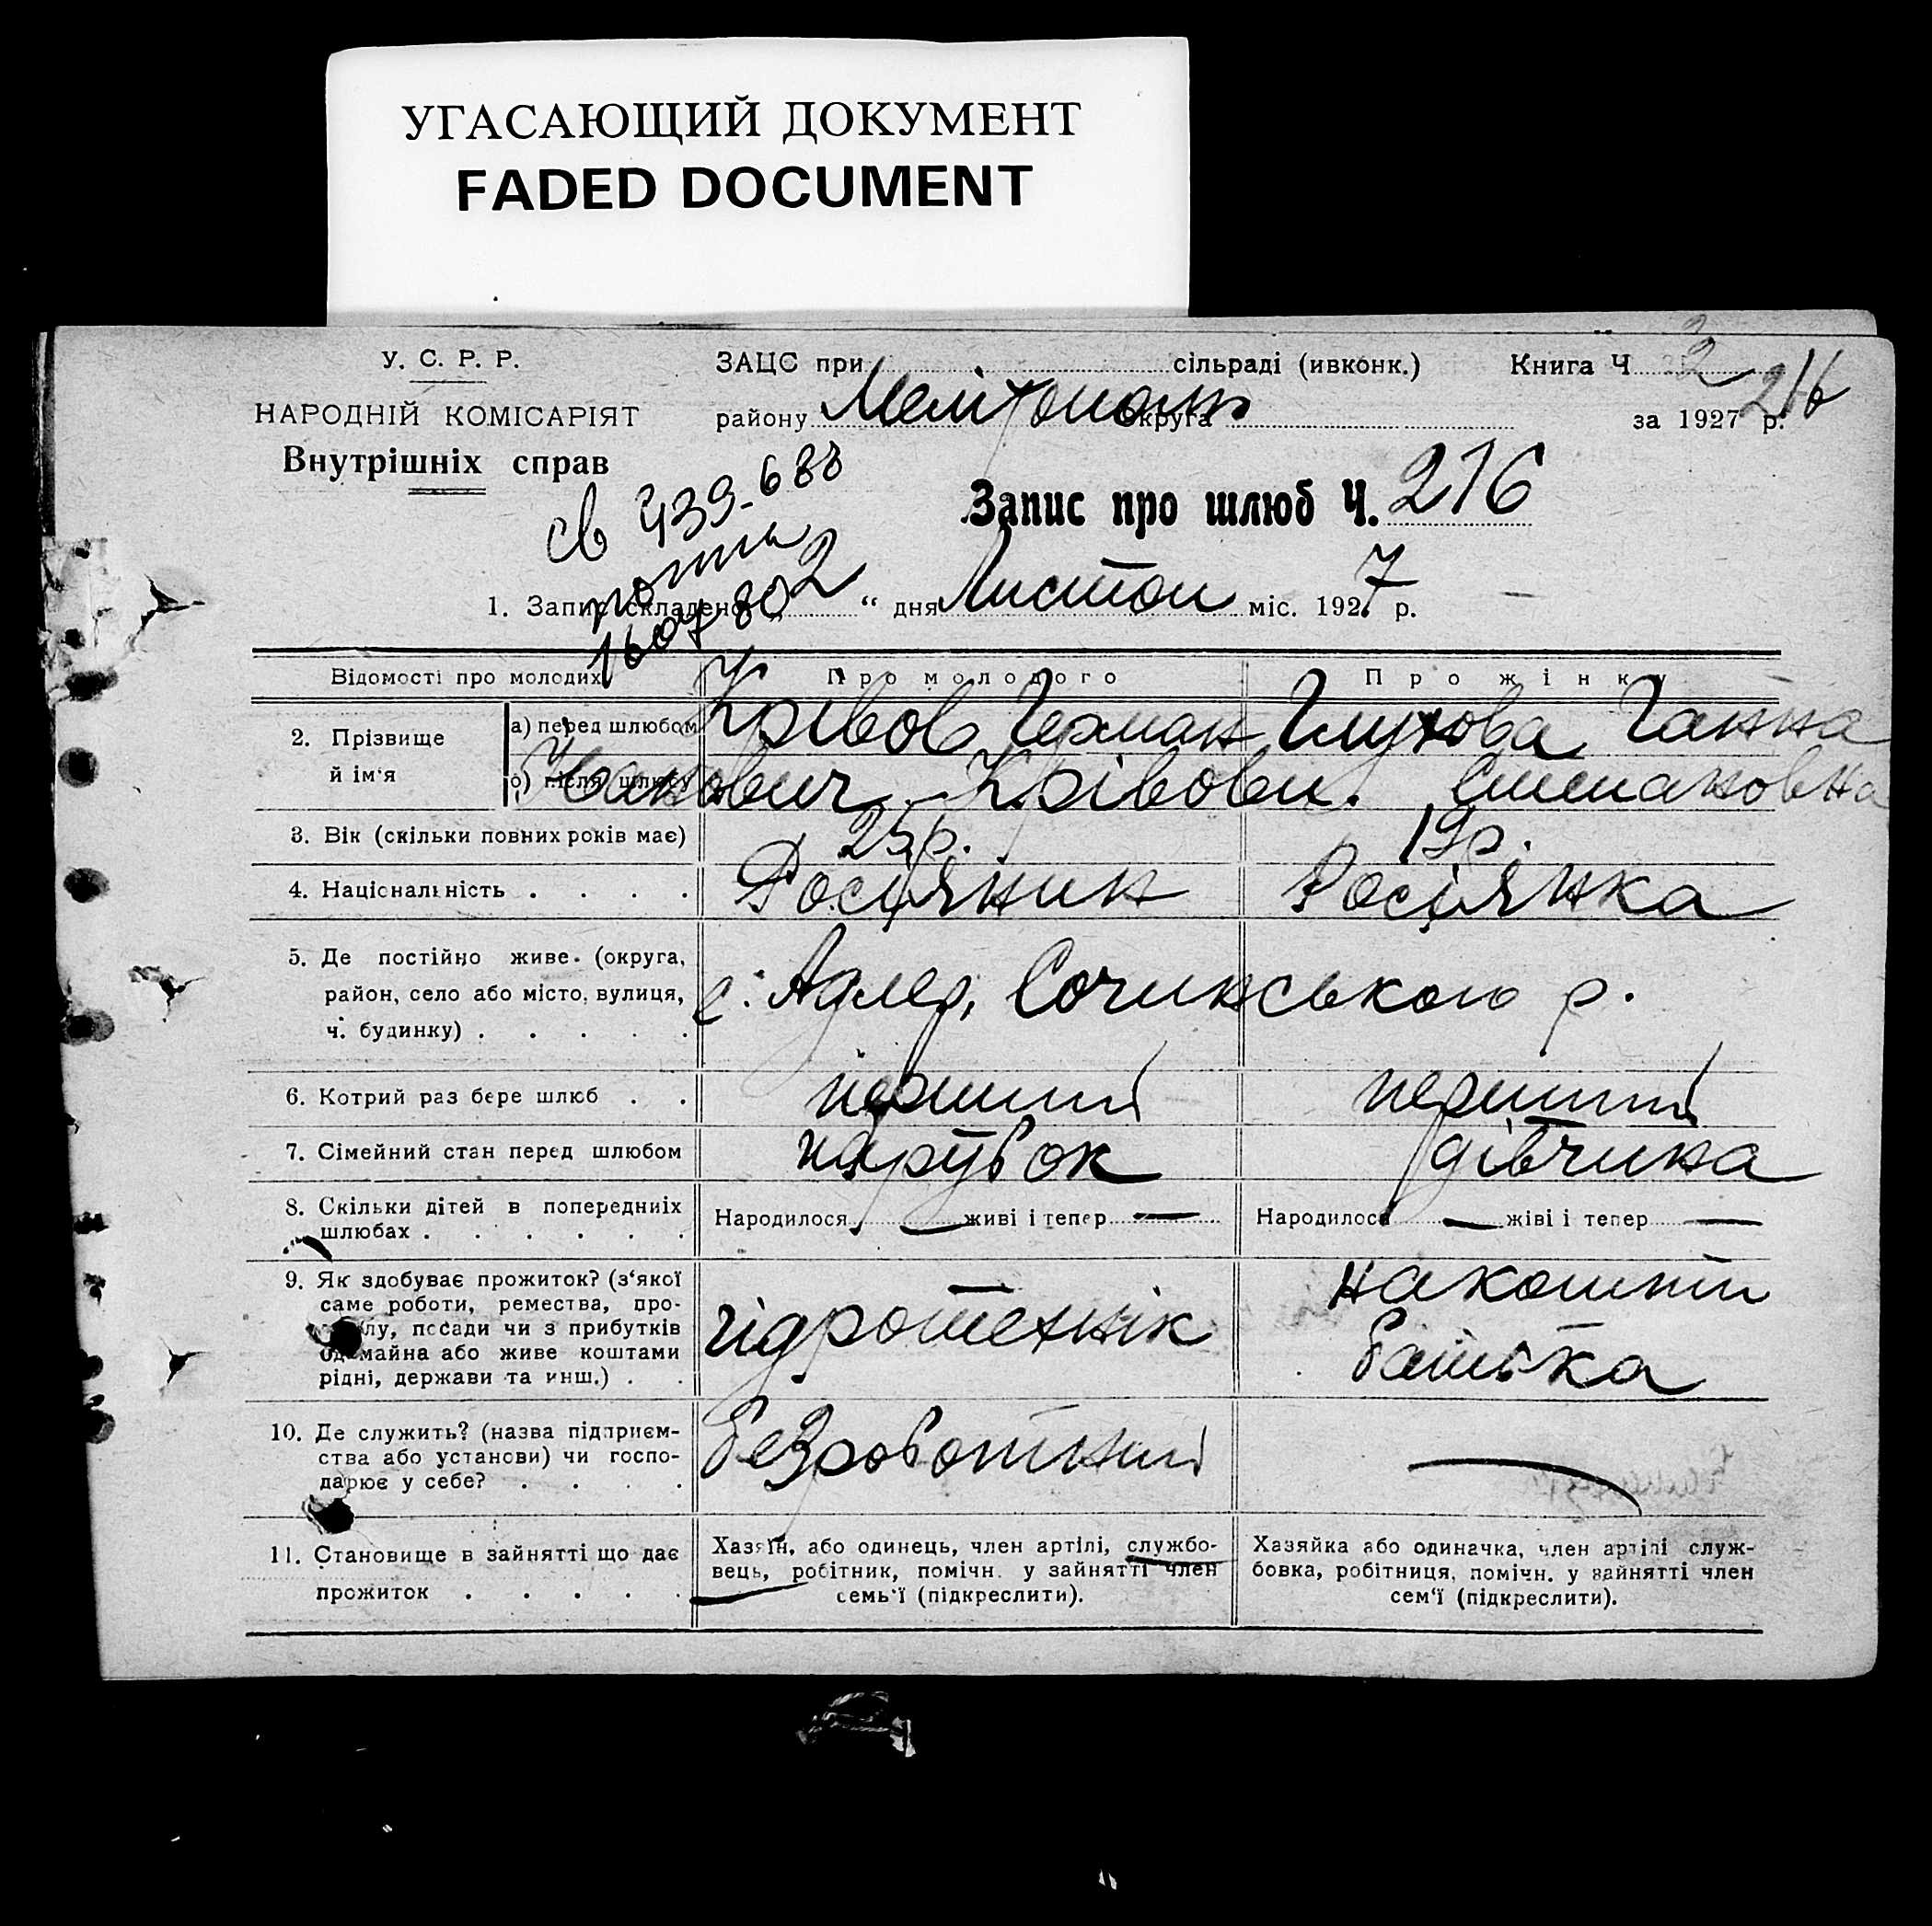 УГАСАЮЩИЙ ДОКУМЕНТ
FADED DOCUMENT
У. С. Р. Р.
НАРОДНІЙ КОМІСАРІЯТ
Внутрішніх справ
ЗАЦС при сільраді (ивконк.) Книга Ч 2
району Мелітополь округа за 1927 р. 216
св 439-688
пошта
160780
Запис про шлюб Ч. 216
1. Запис складено 2 “ дня Листоп міс. 1927 р.
Відомості про молодих Про молодого Про жінку
2. Прізвище й ім‘я
а) перед шлюбом Крівов Герман Глухова Ганна
б) після шлюбу Іванович Крівови. Степановна
3. Вік (скільки повних років має) 25р. 19р.
4. Національність . . . . Росіянин Росіянка
5. Де постійно живе. (округа,
район, село або місто, вулиця,
ч. будинку) . . . . .
с. Адлер, Сочинського р.
6. Котрий раз бере шлюб . . перший перший
7. Сімейний стан перед шлюбом парубок дівчина
8. Скільки дітей в попередниіх
шлюбах . . . . . .
Народилося — живі і тепер — Народилося — жіві і тепер —
9. Як здобуває прожиток? (з‘якої
саме роботи, ремества, про-
лу, посади чи з прибутків
од майна або живе коштами
рідні, держави та инш.) . .
гідротехнік
на кошти
батька
10. Де служить? (назва підприєм-
ства або установи) чи госпо-
дарює у себе? . . . .
безроботний —
11. Становище в зайнятті що дає
прожиток . . . . .
Хазяїн, або одинець, член артілі, службо-
вець, робітник, помічн. у зайнятті член
семь‘ї (підкреслити).
Хазяйка або одиначка, член артілі служ-
бовка, робітниця, помічн. у зайнятті член
сем‘ї (підкреслити).